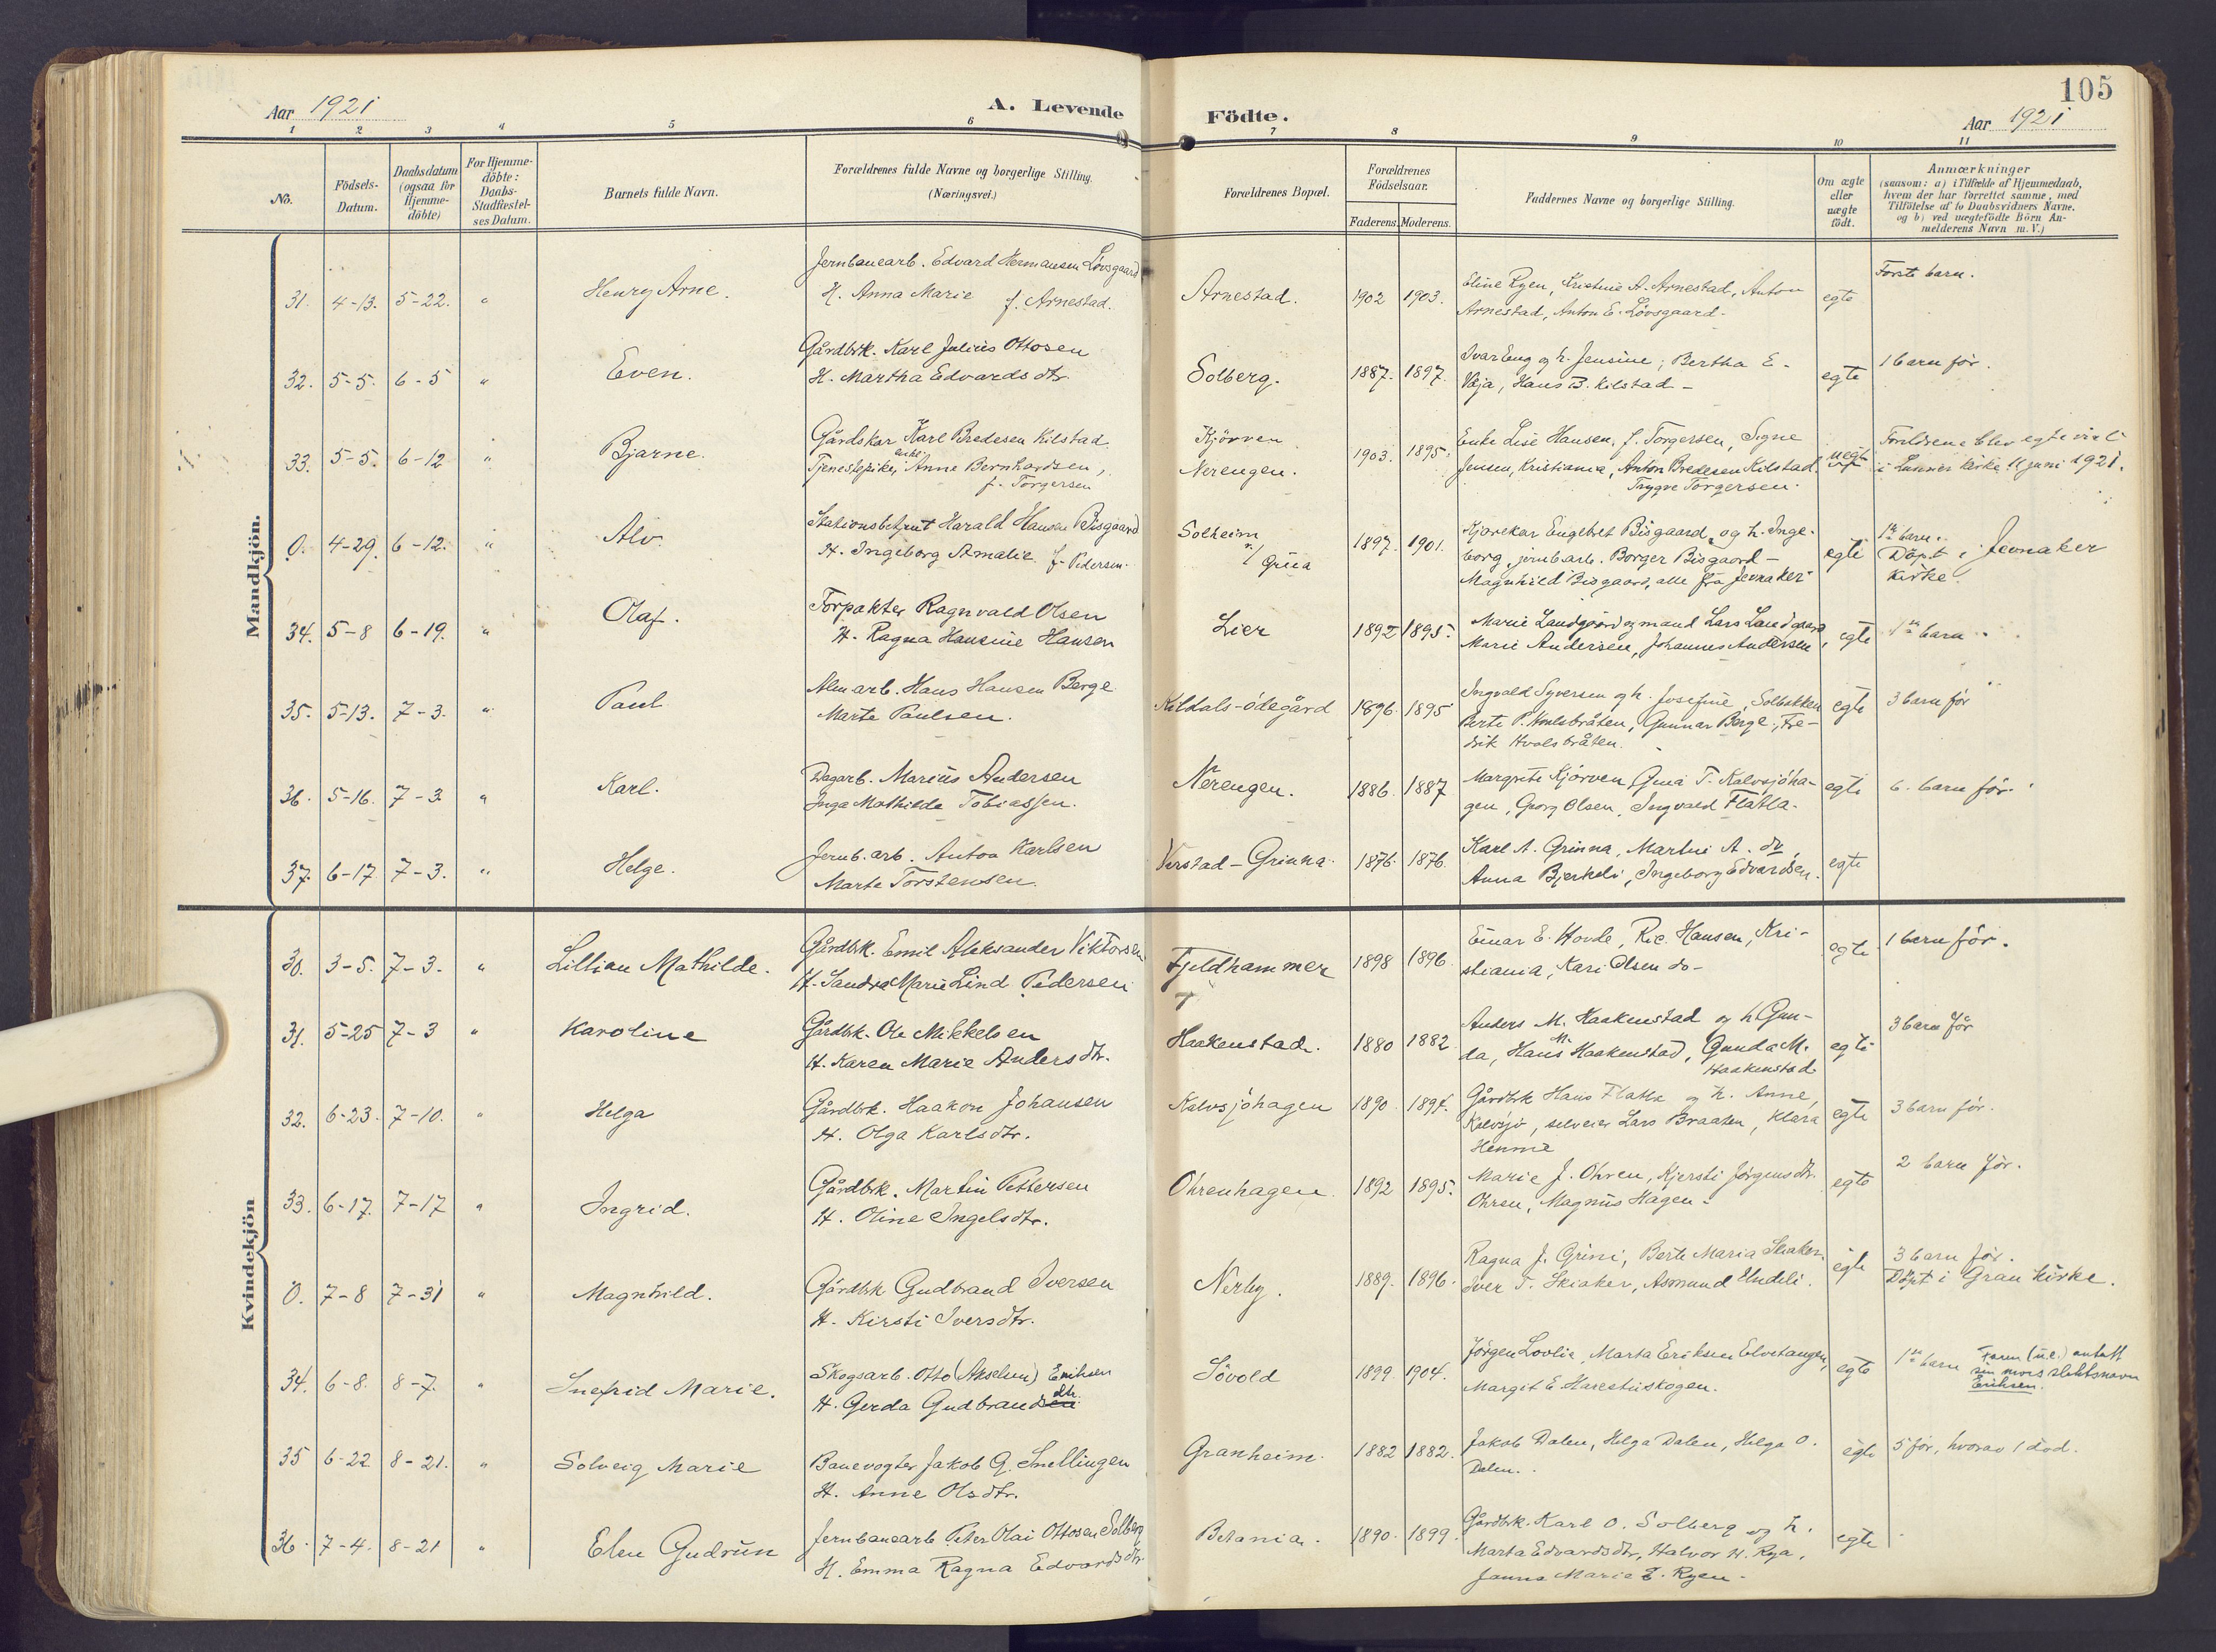 Aar 1921
A. Levende Födte.
Aar 1921
105
1 2 3 4 5 6 7 8 9 10 11
No.
Födsels-Datum.
Daabsdatum (ogsaa for Hjemme-döbte)
For Hjemme-döbte: Daabs-Stadfæstel-ses Datum.
Barnets fulde Navn.
Forældrenes fulde Navne og borgerlige Stilling. (Næringsvei.)
Forældrenes Bopæl.
Forældrenes Födselsaar.
Faderens. Moderens.
Faddernes Navne og borgerlige Stilling.
Om ægte eller uægte födt.
Anmærkninger
(saasom: a) i Tilfælde af Hjemmedaab,
hvem der har forrettet samme, med
Tilföielse af to Daabsvidners Navne.
og b) ved uægtefödte Börn An-
melderens Navn m. V.)
Mandkjön.
31. 4-13. 5-22. " Henry Arne.
Jernbanearb. Edvard Hermansen Lövsgaard
H. Anna Marie f. Arnestad.
Arnestad. 1902 1903.
Eline Ryen, Kristine A. Arnestad, Anton
Arnestad, Anton E. Lövsgaard-
egte Förste barn.
32. 5-5. 6-5 " Even.
Gårdbrk. Karl Julius Ottosen
H. Martha Edvardsdtr.
Solberg. 1887. 1897.
Ivar Eng og h. Jensine; Bertha E.
Vøja, Hans B. Kilstad-
egte 1 barn för.
33. 5-5. 6-12 " Bjarne.
Gårdskar Karl Bredesen Kilstad
Tjenestepike, enke Anne Bernhardsen,
f. Torgersen
Kjörven
Nerengen. 1903. 1895.
Enke Lise Hansen, f. Torgersen, Signe
Jensen, Kristiania, Anton Bredesen Kilstad
Trygve Torgersen.
uegt Foreldrene blev egteviet
i Lunner kirke 11 juni 1921.
0. 4-29. 6-12. " Alv.
Stationsbetjent Harald Hansen Bisgaard
H. Ingeborg Amalie f. Pedersen.
Solheim
Grua 1897. 1901.
Kjörekar Engebret Bisgaard, og h. Inge-
borg, jernbarb. Borger Bisgaard-
Magnhild Bisgaard, alle fra Jevnaker
egte 1ste barn.
Döpt i Jevnaker
kirke.
34. 5-8 6-19. " Olaf.
Forpakter Ragnvald Olsen
H. Ragna Hansine Hansen
Lier 1892 1895.
Marie Landgaard og mand Lars Landgaard,
Marie Andersen, Johannes Andersen
egte 1ste barn
35. 5-13. 7-3. " Paul
Alm arb. Hans Hansen Berge
Marte Paulsen.
Kildals-ödegård 1896. 1895
Ingvald Syversen og h. Josefine, Solbakken
Berte P. Hvalsbråten, Gunnar Berge, Fre-
drik Hvalsbråten.
egte 3 barn för
36. 5-16. 7-3 " Karl.
Dagarb. Marius Andersen
Inga Mathilde Tobiassen.
Nerengen. 1886. 1887
Margrete Kjörven, Gina T. Kalvsjöha-
gen, Georg Olsen, Ingvald Flatla.
egte 6. barn för.
37. 6-17 7-3. " Helge.
Jernb. arb. Anton Karlsen
Marte Torstensen.
Verstad-Grinna. 1876. 1876.
Karl A. Grinna, Martine A. do,
Anna Bjerkeli, Ingeborg Edvardsen.
egte
Kvindekjön
30. 3-5. 7-3. " Lillian Mathilde.
Gårdbrk. Emil Aleksander Viktorsen
H. Sandra Marie Lind Pedersen
Fjeldhammer 1898 1896
Einar E. Hovde, Ric. Hansen, Kri-
stiania, Kari Olsen do-
egte 1 barn för.
31. 5-25 7-3 " Karoline
Gårdbrk. Ole Mikkelsen
H. Karen Marie Andersdtr.
Haakenstad. 1880 1882
Anders M. Haakenstad og h. Gun-
da, Hans M. Haakenstad, Gunda M.
Haakenstad
egte 3 barn för
32. 6-23. 7-10. " Helga
Gårdbrk. Haakon Johansen
H. Olga Karlsdtr.
Kalvsjöhagen 1890. 1894.
Gårdbrk Hans Flatla og h. Anne,
Kalvsjö, selveier Lars Braaten, Klara
Hennie
egte 3 barn för.
33. 6-17. 7-17 " Ingrid.
Gårdbrk. Martin Pettersen
H. Oline Ingelsdtr.
Ohrenhagen. 1892 1895.
Marie J. Ohren, Kjersti Jörgensdtr.
Ohren, Magnus Hagen-
egte 2 barn för.
0. 7-8 7-31 " Magnhild.
Gårdbrk Gudbrand Iversen
H. Kirsti Iversdtr.
Nerby. 1889. 1896.
Ragna J. Grini, Berte Maria Skiaker
Iver T. Skiaker, Asmund Undeli.
egte 3 barn för.
Döpt i Gran kirke.
34. 6-8. 8-7. " Snefrid Marie.
Skogsarb. Otto (Akselsen) Eriksen
H. Gerda Gudbrandsen dtr.
Lövold 1899. 1904.
Jörgen Lovlie, Marta Eriksen Elvetangen,
Margit E. Harestuskogen.
egte 1ste barn Faren (u.e.) antatt
sin mors slektsnavn
Eriksen.
35 6-22 8-21. " Solveig Marie
Banevogter Jakob G. Snellingen
H. Anne Olsdtr.
Granheim. 1882 1882.
Jakob Dalen, Helga Dalen, Helga O.
Dalen.
egte 5 för, hvorav 1 död.
36. 7-4. 8-21 " Elen Gudrun
Jernbanearb Peter Olai Ottosen Solberg
H. Emma Ragna Edvardsdtr
Betania. 1890. 1899.
Gårdbrk. Karl O. Solberg og h.
Marta Edvardsdtr, Halvor H. Rya,
Janna Marie E. Ryen-
egte